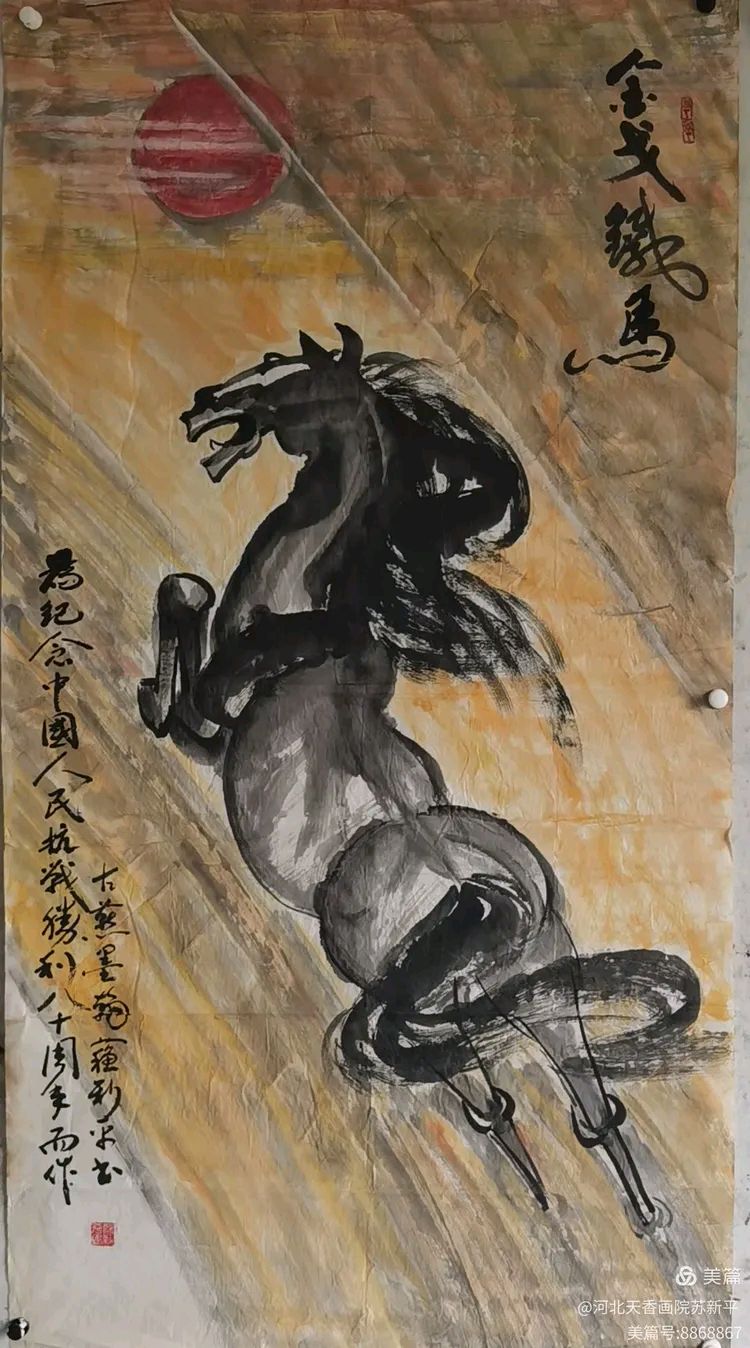 金戈鐵馬
為紀念中國人民抗戰勝利八十周年而作
古燕墨翰蘇新平书
美篇
@河北天香画院苏新平
美篇号:8868867